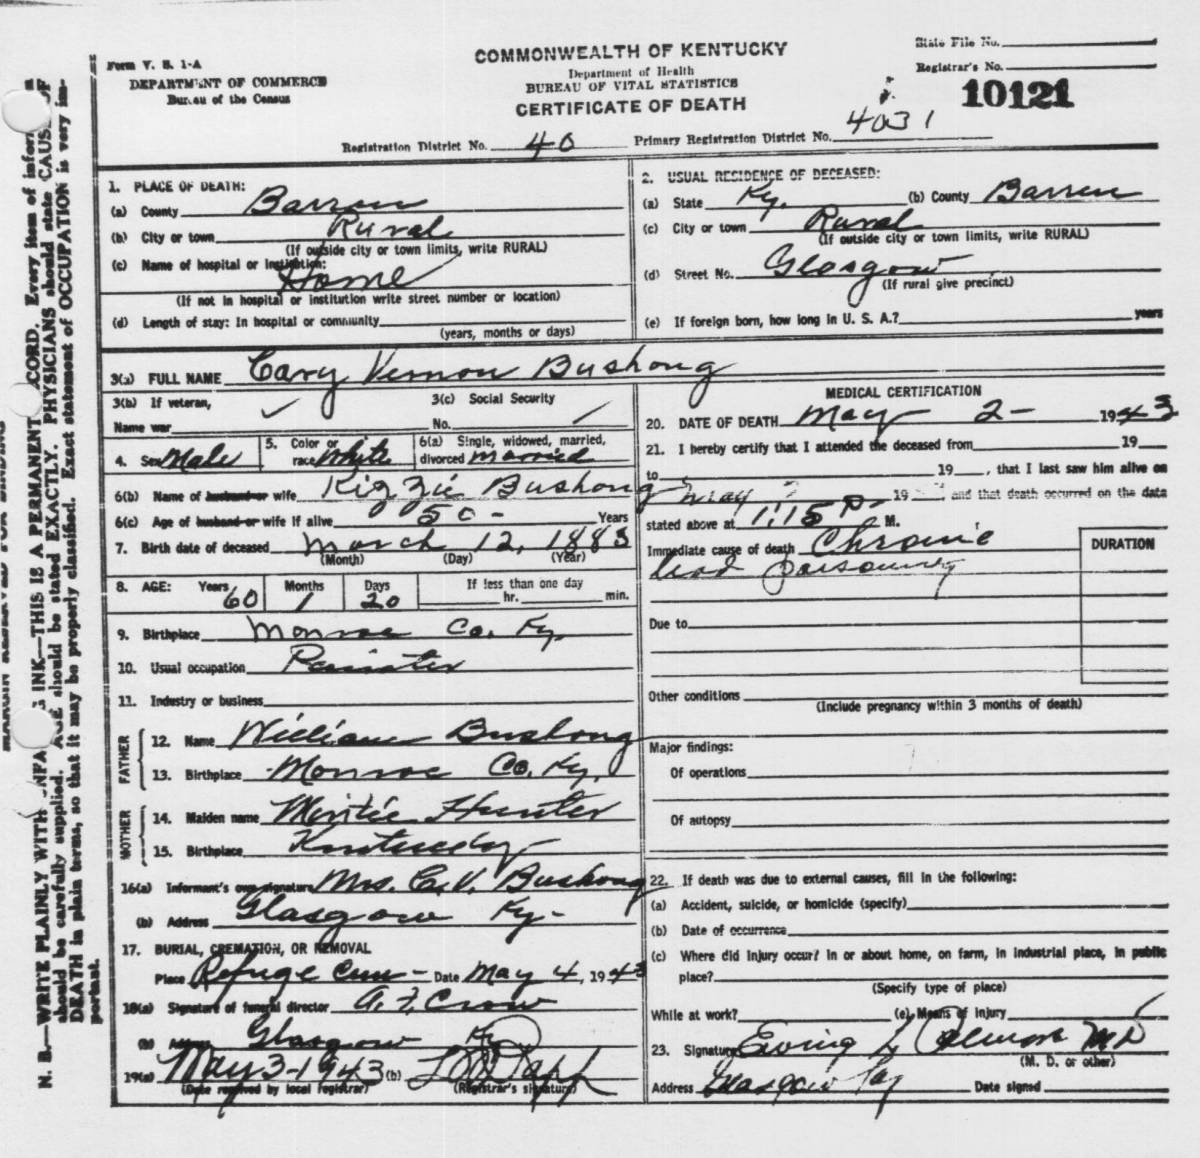 Form V. S. 1-A
DEPARTMENT OF COMMERCE
Bureau of the Census
COMMONWEALTH OF KENTUCKY
Department of Health
BUREAU OF VITAL STATISTICS
CERTIFICATE OF DEATH
State File No.
Registrar's No.
10121
Registration District No. 40 Primary Registration District No. 4031
1. PLACE OF DEATH:
(a) County Barren
(b) City or town Rural
(If outside city or town limits, write RURAL)
(c) Name of hospital or institution:
Home
(If not in hospital or institution write street number or location)
(d) Length of stay: In hospital or community
(years, months or days)
2. USUAL RESIDENCE OF DECEASED:
(a) State Ky. (b) County Barren
(c) City or town Rural
(If outside city or town limits, write RURAL)
(d) Street No. Glasgow
(If rural give precinct)
(e) If foreign born, how long in U. S. A.? years
3(a) FULL NAME Cary Vernon Bushong
3(b) If veteran, 3(c) Social Security
Name war No.
4. Sex Male 5. Color or race White 6(a) Single, widowed, married, divorced married
6(b) Name of husband or wife Kizzie Bushong
6(c) Age of husband or wife if alive 50 - Years
7. Birth date of deceased March 12, 1883
(Month) (Day) (Year)
8. AGE: Years 60 Months 1 Days 20 If less than one day hr. min.
9. Birthplace Monroe Co. Ky.
10. Usual occupation Painter
11. Industry or business
FATHER
12. Name William Bushong
13. Birthplace Monroe Co. Ky.
MOTHER
14. Maiden name Hunter
15. Birthplace Kentucky
16(a) Informant's own signature Mrs. C. V. Bushong
(b) Address Glasgow Ky-
17. BURIAL, CREMATION, OR REMOVAL
Place Refuge Cem- Date May 4, 1943
18(a) Signature of funeral director A. F. Crow
(b) Address Glasgow Ky
19(a) May 3-1943 (b)
(Date received by local registrar) (Registrar's signature)
MEDICAL CERTIFICATION
20. DATE OF DEATH May 2- 1943
21. I hereby certify that I attended the deceased from 19
to 19, that I last saw him alive on
May 2 19, and that death occurred on the date
stated above at 1:15 P. M.
Immediate cause of death Chronic
lead poisoning
DURATION
Due to
Other conditions
(Include pregnancy within 3 months of death)
Major findings:
Of operations
Of autopsy
22. If death was due to external causes, fill in the following:
(a) Accident, suicide, or homicide (specify)
(b) Date of occurrence
(c) Where did injury occur? In or about home, on farm, in industrial place, in public
place?
(Specify type of place)
While at work? (e) Means of injury
23. Signature Ewing L MD
(M. D. or other)
Address Glasgow Ky Date signed
N. B.—WRITE PLAINLY WITH INK—THIS IS A PERMANENT RECORD. Every item of
should be carefully supplied. AGE should be stated EXACTLY. PHYSICIANS should state CAUSE OF
DEATH in plain terms, so that it may be properly classified. Exact statement of OCCUPATION is very im-
portant.